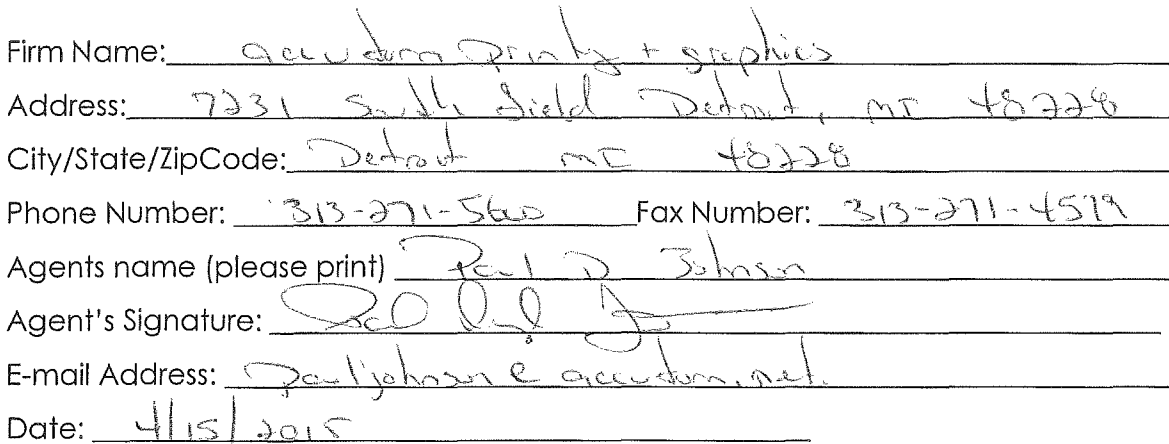 Firm Name: accuform Printg + graphics
Address: 7231 South field Detroit, MI 48228
City/State/ZipCode: Detroit MI 48228
Phone Number: 313-271-5600 Fax Number: 313-271-4579
Agents name (please print) Paul D Johnson
Agent's Signature:
E-mail Address: Pauljohnson @ accuform.net.
Date: 4/15/2015